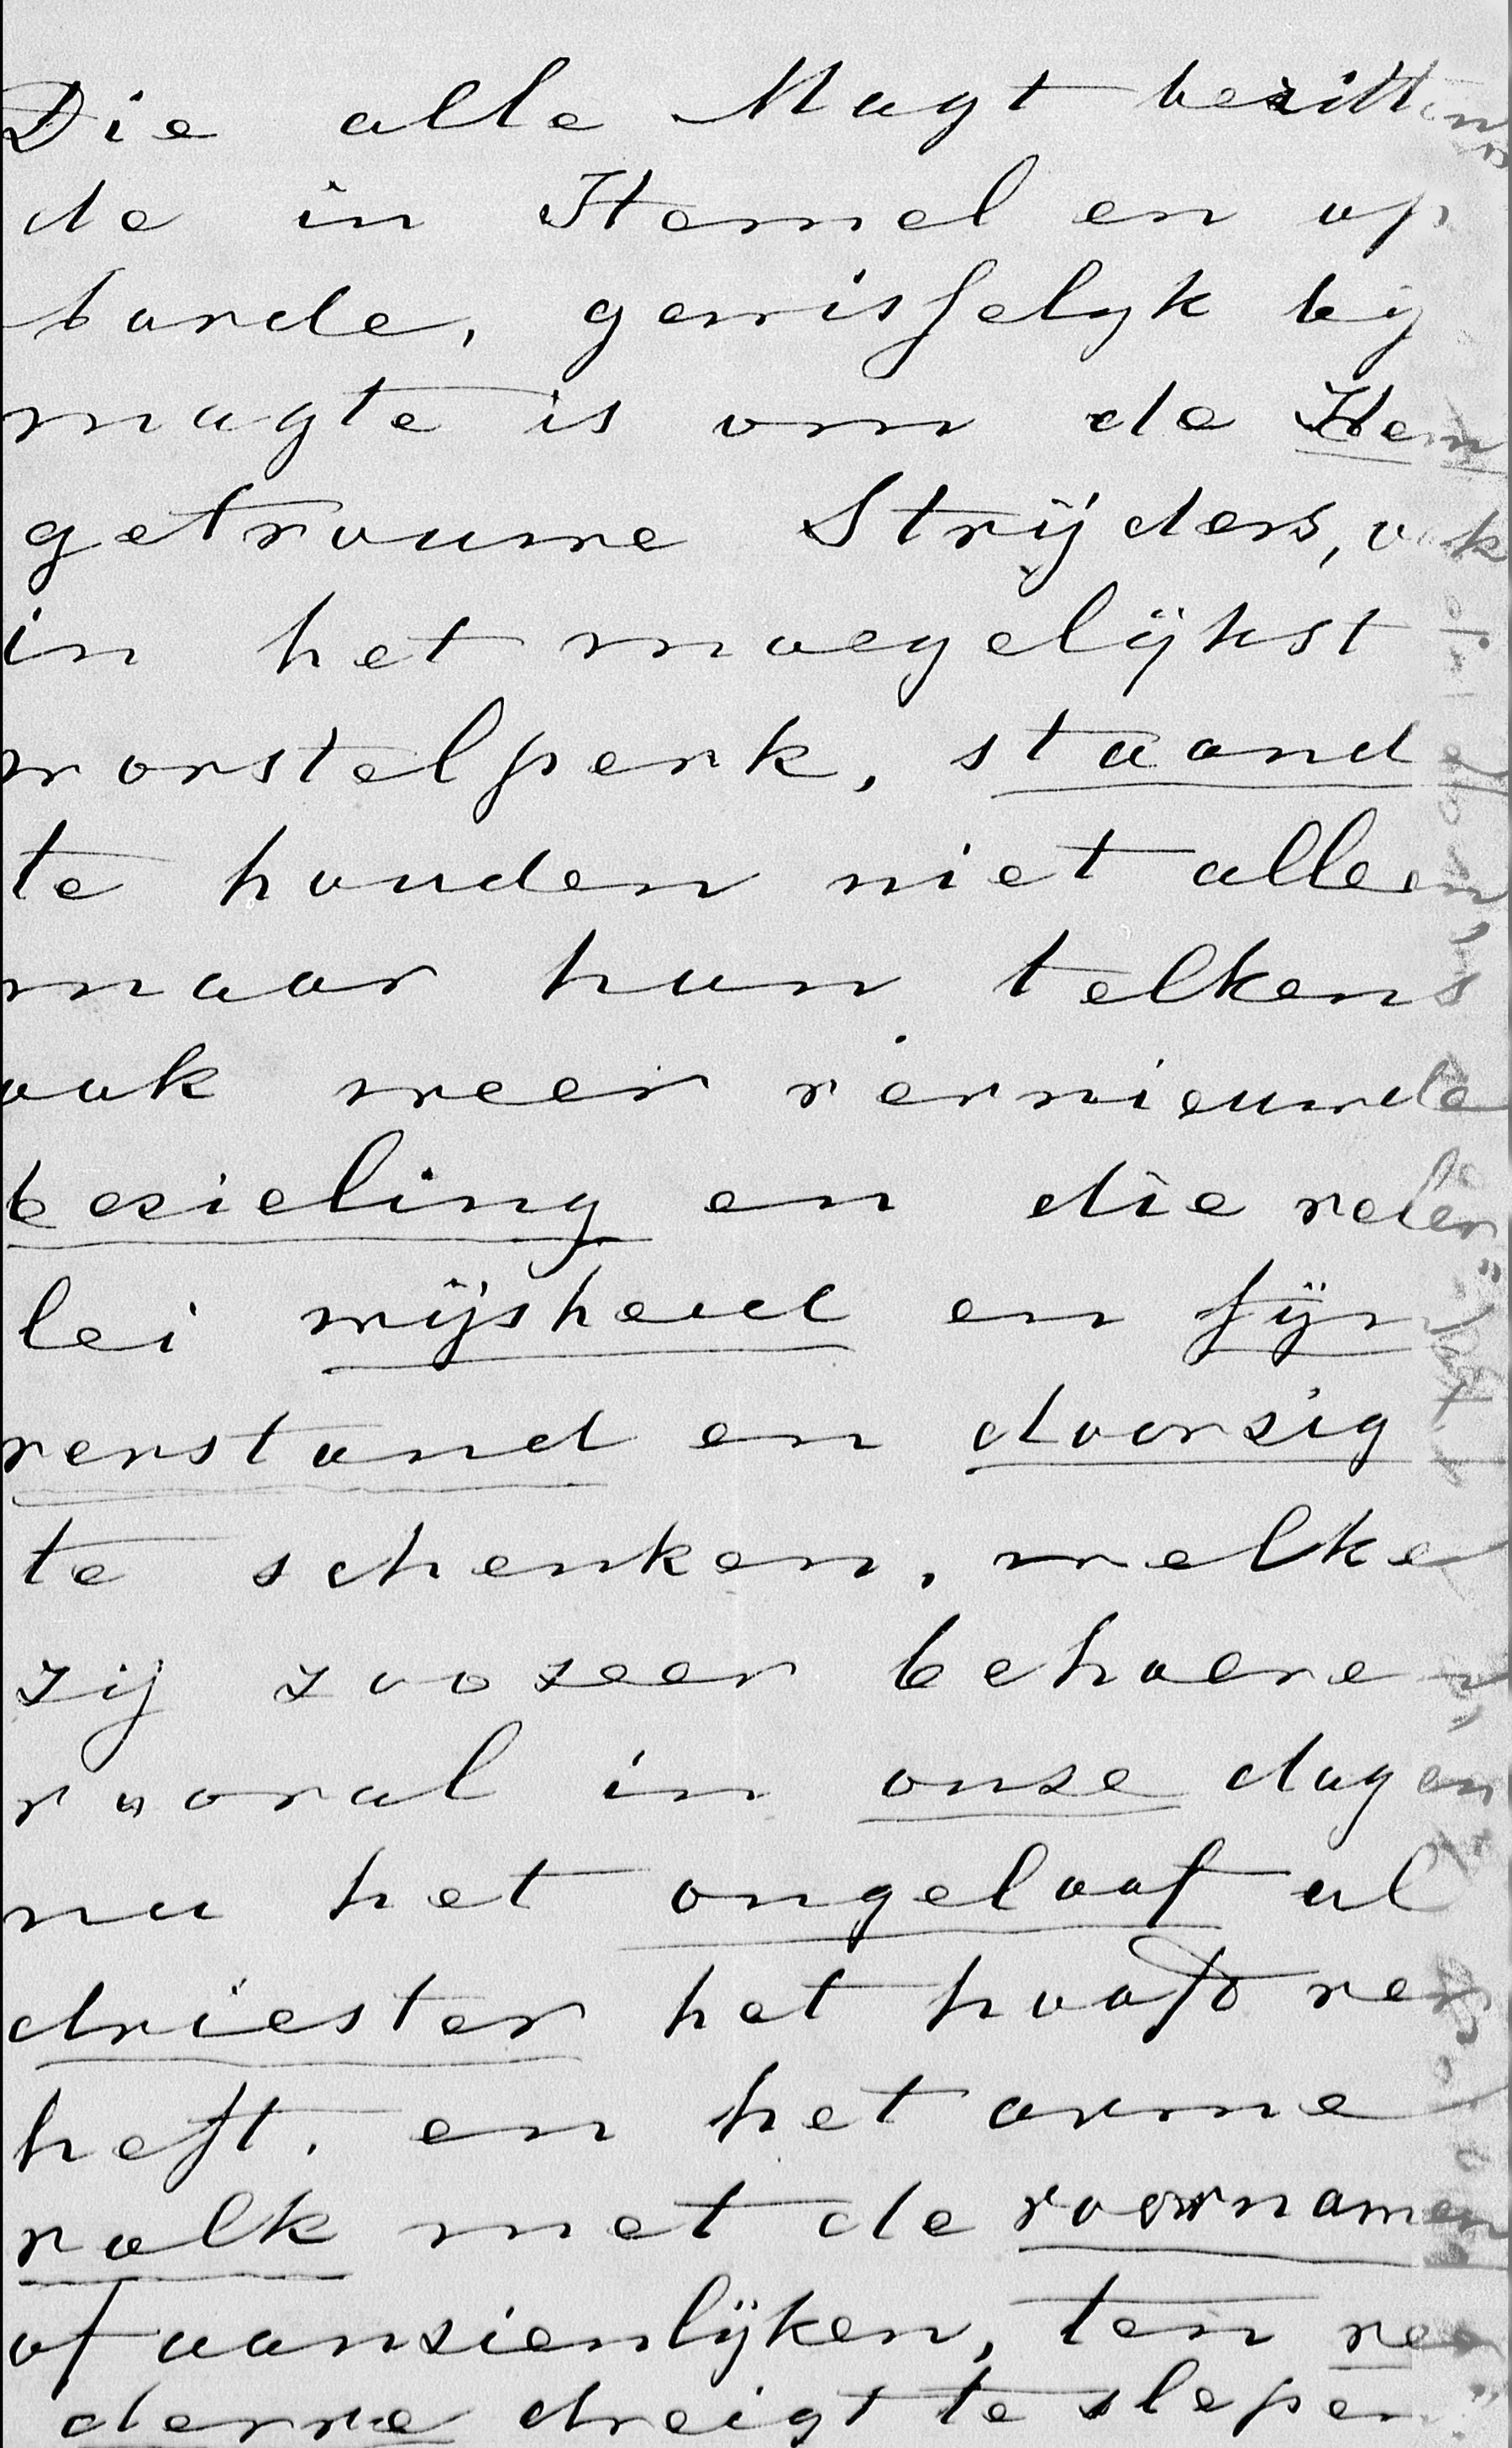 Die alle Magt bezitten
de in Hemel en op
aarde, gewisselyk by
magte is om de Hem
getrouwe Strijders, ook
in het moegelijkst
worstelperk, staand
te houden niet alleen,
maar hun telkens
ook weer vernieuwde
bezieling en die veler
lei wijsheid en fijn
verstand en doorzig
te schenken, welke
zij zoozeer behoeven,
vooral in onze dagen
nu het ongeloof al
driester het hoofd ver
heft, en het arme
volk met de voornamen
of aanzienlijken, ten ver
derve dreigt te slepen